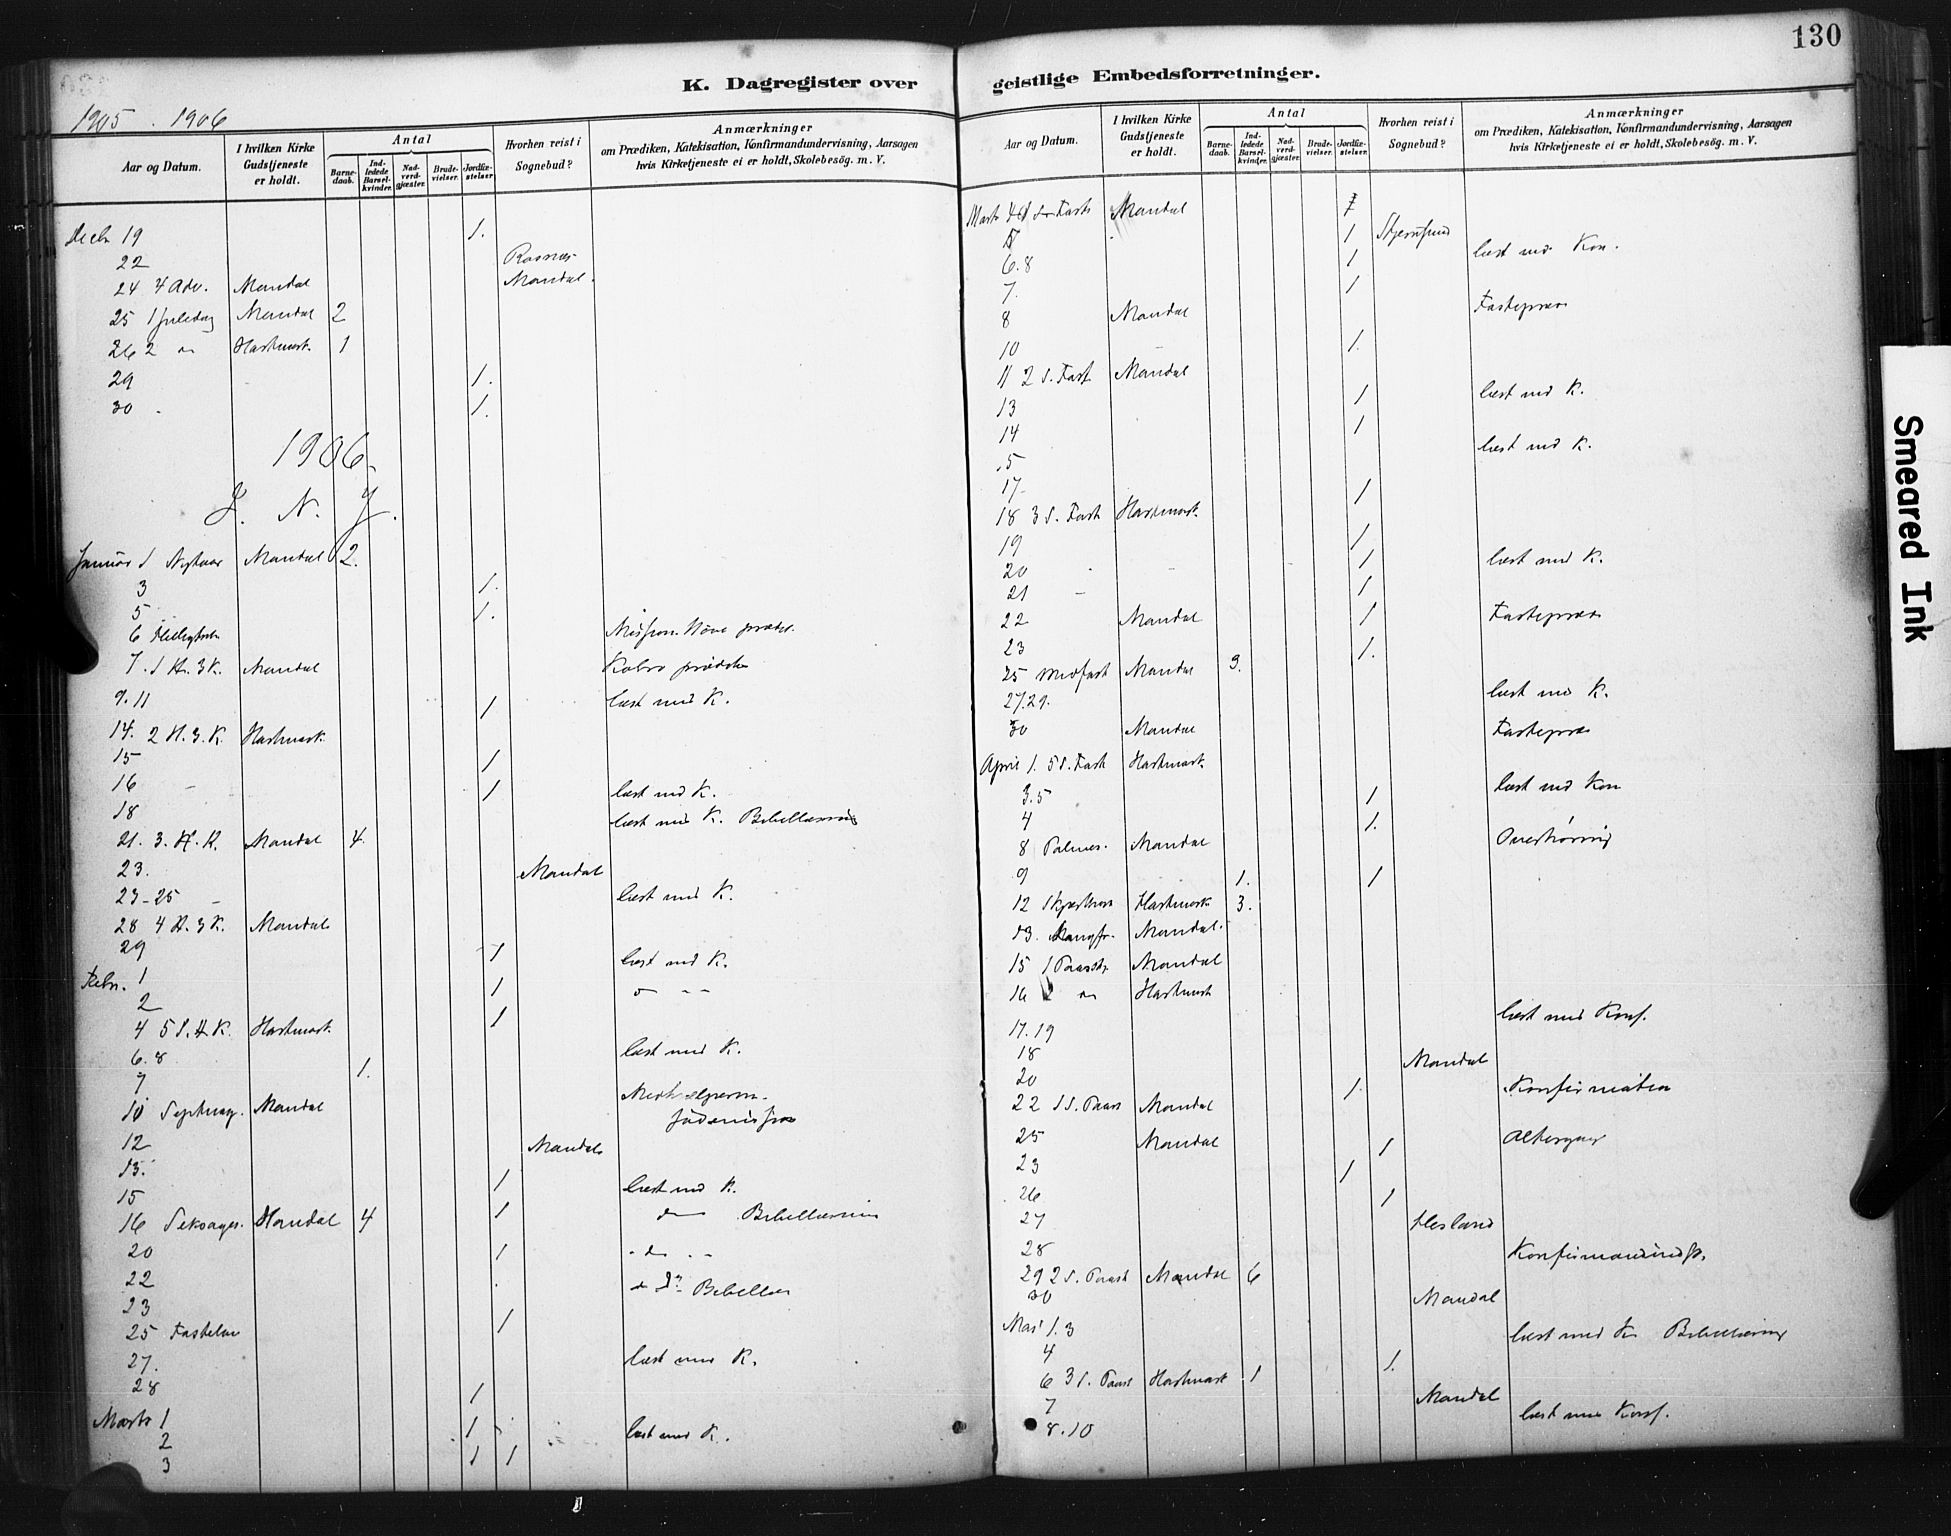 130
K. Dagregister over geistlige Embedsforretninger.
1905 . 1906
Aar og Datum.
I hvilken Kirke Gudstjeneste er holdt.
Antal
Barnedaab.
Indledede Barselkvinder.
Nadverdgjæster.
Brudevielser.
Jordfæstelser.
Hvorhen reist i Sognebud?
Anmærkninger
om Prædiken, Katekisation, Konfirmandundervisning, Aarsagen
hvis Kirketjeneste ei er holdt, Skolebesøg. m. V.
Decbr 19 1.
22
24 4 Adv. Mandal Mandal.
25 1 Juledag Mandal 2
26 2 Hartmark 1
29 1.
30 1.
1906
J. N. J.
Januar 1 Nytaar Mandal 2.
3 1.
5 1.
6
7. 1 H. 3 K. Mandal
9. 11 1 læst med K.
14. 2 H. 3. K. Hartmark
15 1
16 1 læst med K.
18 læst med K. Bibellæsning
21. 3. H. K. Mandal 4
23. Mandal
23-25 læst med K.
28 4 H. 3 K. Mandal
29 1 læst med K.
Febr. 1 1
2 1
4 5 S. H. K. Hartmark
6. 8 læst med K.
7 1.
10 Septuag. Mandal
12 Mandal
13.
15 1 læst med K.
16 Seksages. Mandal 4 1 Bibellæsning
20 1
22
23 1
25 Fastelav
27. læst med K.
28 1
Marts 1 1
2 1 læst med K.
3 1 1
Aar og Datum.
I hvilken Kirke Gudstjeneste er holdt.
Antal
Barnedaab.
Indledede Barselkvinder.
Nadverdgjæster.
Brudevielser.
Jordfæstelser.
Hvorhen reist i Sognebud?
Anmærkninger
om Prædiken, Katekisation, Konfirmandundervisning, Aarsagen
hvis Kirketjeneste ei er holdt, Skolebesøg. m. V.
Marts 4 Mandal
5 1
6. 8 1 læst med Kon.
7. 1
8 Mandal
10 1.
11 2 S. Fast Mandal
13 1 læst med K.
14 1
15 læst med K.
17 1
18 3 S. Fast Hartmark
19 1
20 1 læst med K.
21 1
22 Mandal 1
23 1.
25 Midfast Mandal 3.
27. 29. læst med K.
30 Mandal
April 1. 5 S. Fast Hartmark
3. 5 1 læst med Kon
4 1.
8 Palmes. Mandal Overhøring
9 1. 1
12 Skjærtors Hartmark 3.
13. Langfr. Mandal.
15 1 Paaske Mandal
16 2 Hartmark
17. 19 læst med Konf.
18 Mandal
20 1.
22 1 S. Paas Mandal Konfirmation
25 Mandal 1 Altergang
23 1
26 1
27
28
29 2 S. Paask Mandal 6
30 Mandal
Mai 1. 3 læst med K Bibellæsning
4 1.
6 3 S. Paask Hartmark 1
7 Mandal
8. 10 læst med Konf.
Smeared Ink